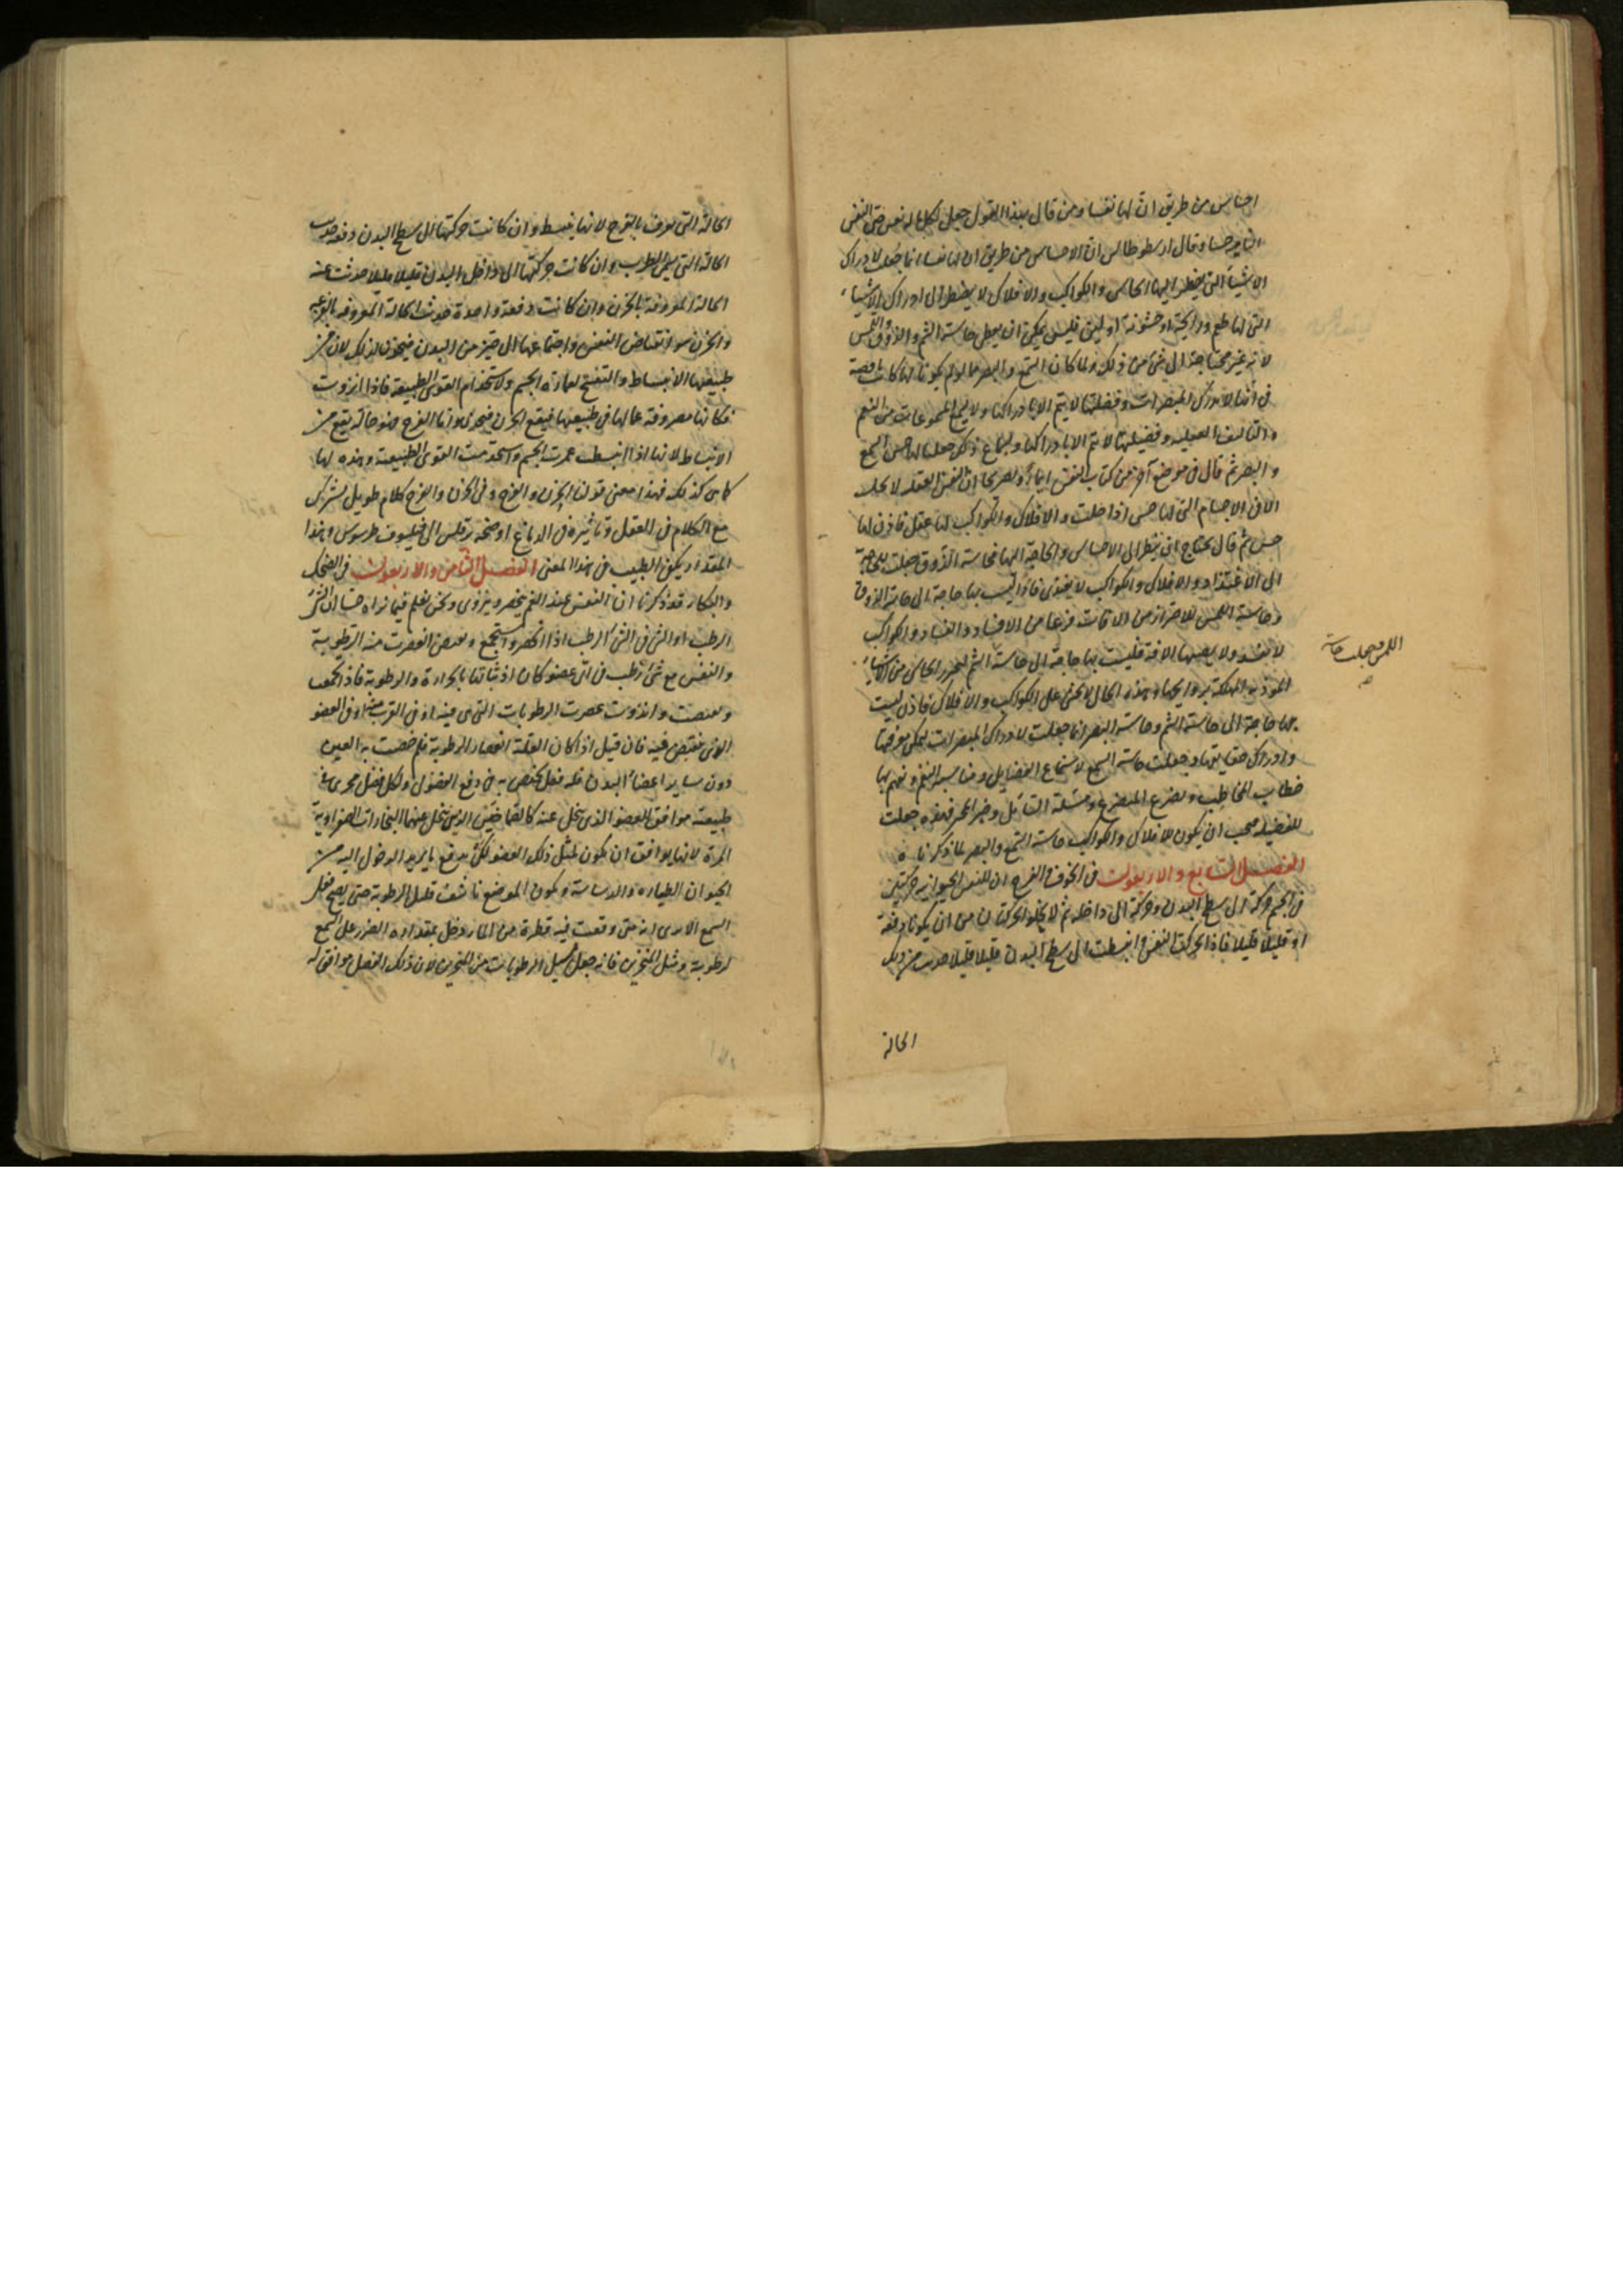 احساس من طريق ان لها نفسا ومن قال بهذا القول جعل لكل ماله نفس حتى النفس
النامية حسا وقال ارسطوطاليس ان الاحساس من طريق ان لها نفسا انما جعلت لادراك
الاشياء التى يضطر اليها الحاس والكواكب والافلاك لا يضطر الى ادراك الاشياء
التى لها طعم ورائحة او خشونة او لين فليس يمكن ان يعطى حاسة الشم والذوق واللمس
لانه غير محتاجة الى شئ من ذلك ولما كان السمع والبصر مما لو لم يكونا لها كانت ناقصة
فى انها لا تدرك المبصرات وفضيلتها لا يتم الا بادراكها ولا يسمع المسموعات من النغم
والتاليف العقلية وفضيلتها لا يتم الا بادراكها وسماع ذلك جعلنا لها حس السمع
والبصر ثم قال فى موضع آخر من كتاب النفس ايماء وتصريحا ان النفس العقلية لا تحل
الا فى الاجسام التى لها حس اذا حلت والافلاك والكواكب لها عقل فاذن لها
حس ثم قال يحتاج ان ينظر الى الاحساس والحاجة اليها فحاسة الذوق جعلت للحاجة
الى الاغتذاء والافلاك والكواكب لا يغتذى فاذا ليست بها حاجة الى حاسة الذوق
وحاسة اللمس للاحتراز من الآفات فزعا من الافساد والفساد والكواكب
لا تفسد ولا يصيبها الآفة فليست بها حاجة الى حاسة الشم ليتحرز الحاس من الاشياء
الموذية المهلكة بروايحها وهذه الحال لا تجئ على الكواكب والافلاك فاذن ليست
بها حاجة الى حاسة الشم وحاسة البصر انما جعلت لادراك المبصرات ليمكن معرفتها
وادراك حقايقها وجعلت حاسة السمع لاستماع الفضايل ومناسبة النغم ونفهم بها
خطاب المخاطب وتضرع المتضرع ومسئلة السائل وخبر المخبر فهذه جعلت
للفضيلة فيجب ان يكون للافلاك والكواكب حاسة السمع والبصر لما ذكرناه
الفصل السابع والاربعون فى الخوف والفرح ان للنفس الحيوانية حركتين
فى الجسم حركة الى سطح البدن وحركة الى داخله ثم لا يخلو الحركتان من ان يكونا دفعة
او قليلا قليلا فاذا تحركت النفس وانبسطت الى سطح البدن قليلا قليلا حدث من ذلك
اللمس وجعلت حاسة
صح
الحالة
الحالة التى يعرف بالفرح لانها ينبسط وان كانت حركتها الى سطح البدن دفعة حدثت
الحالة التى تسمى الطرب وان كانت حركتها الى داخل البدن قليلا قليلا حدثت عنه
الحالة المعروفة بالحزن وان كانت دفعة واحدة حدثت الحالة المعروفة بالفزع
والحزن هو انقباض النفس واجتماعها الى حيز من البدن فيحزن لذلك لان من
طبيعتها الانبساط والتفتح لعمارة الجسم ولاستخدام القوى الطبيعية فاذا انزوت
فكانها مصروفة عما لها فى طبيعتها فيقع الحزن فيحزن واما الفرح فهو حالة يقع من
الانبساط لانها اذا انبسطت عمرت الجسم واستخدمت القوى الطبيعية وهذه لها
كاس كذلك فهذا معنى قولنا الحزن والفرح وفى الحزن والفرح كلام طويل يشترك
مع الكلام فى العقل وتاثيره فى الدماغ اوضحه برقلس الى فيلسوف طرسوس وهذا
المقدار يكفى الطبيب فى هذا المعنى الفصل الثامن والاربعون فى الضحك
والبكاء قد ذكرنا ان النفس عند الغم ينحصر وينزوى ونحن نعلم فيما نراه حسا ان الشئ
الرطب او الشئ فى الشئ الرطب اذا انحصر واستجمع وتعصر انعصرت منه الرطوبة
والنفس مع شئ رطب فى اى عضو كان اذ ثباتها بالحرارة والرطوبة فاذا اجتمعت
وتعصرت وانزوت عصرت الرطوبات التى هى فيه او فى القرب منه او فى العضو
الذى ينقبض فيه فان قيل اذا كان العلة انعصار الرطوبة فلم خصت به العين
دون ساير اعضاء البدن فله فعل يختص به فى دفع الفضول ولكل فضل مجرى فى
طبيعته موافق للعضو الذى يتحلل عنه كالصماخين الذين يتحلل عنهما البخارات الصفراوية
المرة لانها يوافق ان يكون لمثل ذلك العضو لكى يدفع ما يريد الدخول اليه من
الحيوان الطيارة والدساسة ويكون الموضع ناشفا قليل الرطوبة حتى يصح فعل
السمع الا ترى انه متى وقعت فيه قطرة من الماء دخل بمقداره الضرر على السمع
لرطوبة ومثل المنخرين فانه جعل مسيل الرطوبات من المنخرين لان ذلك الفضل موافق له